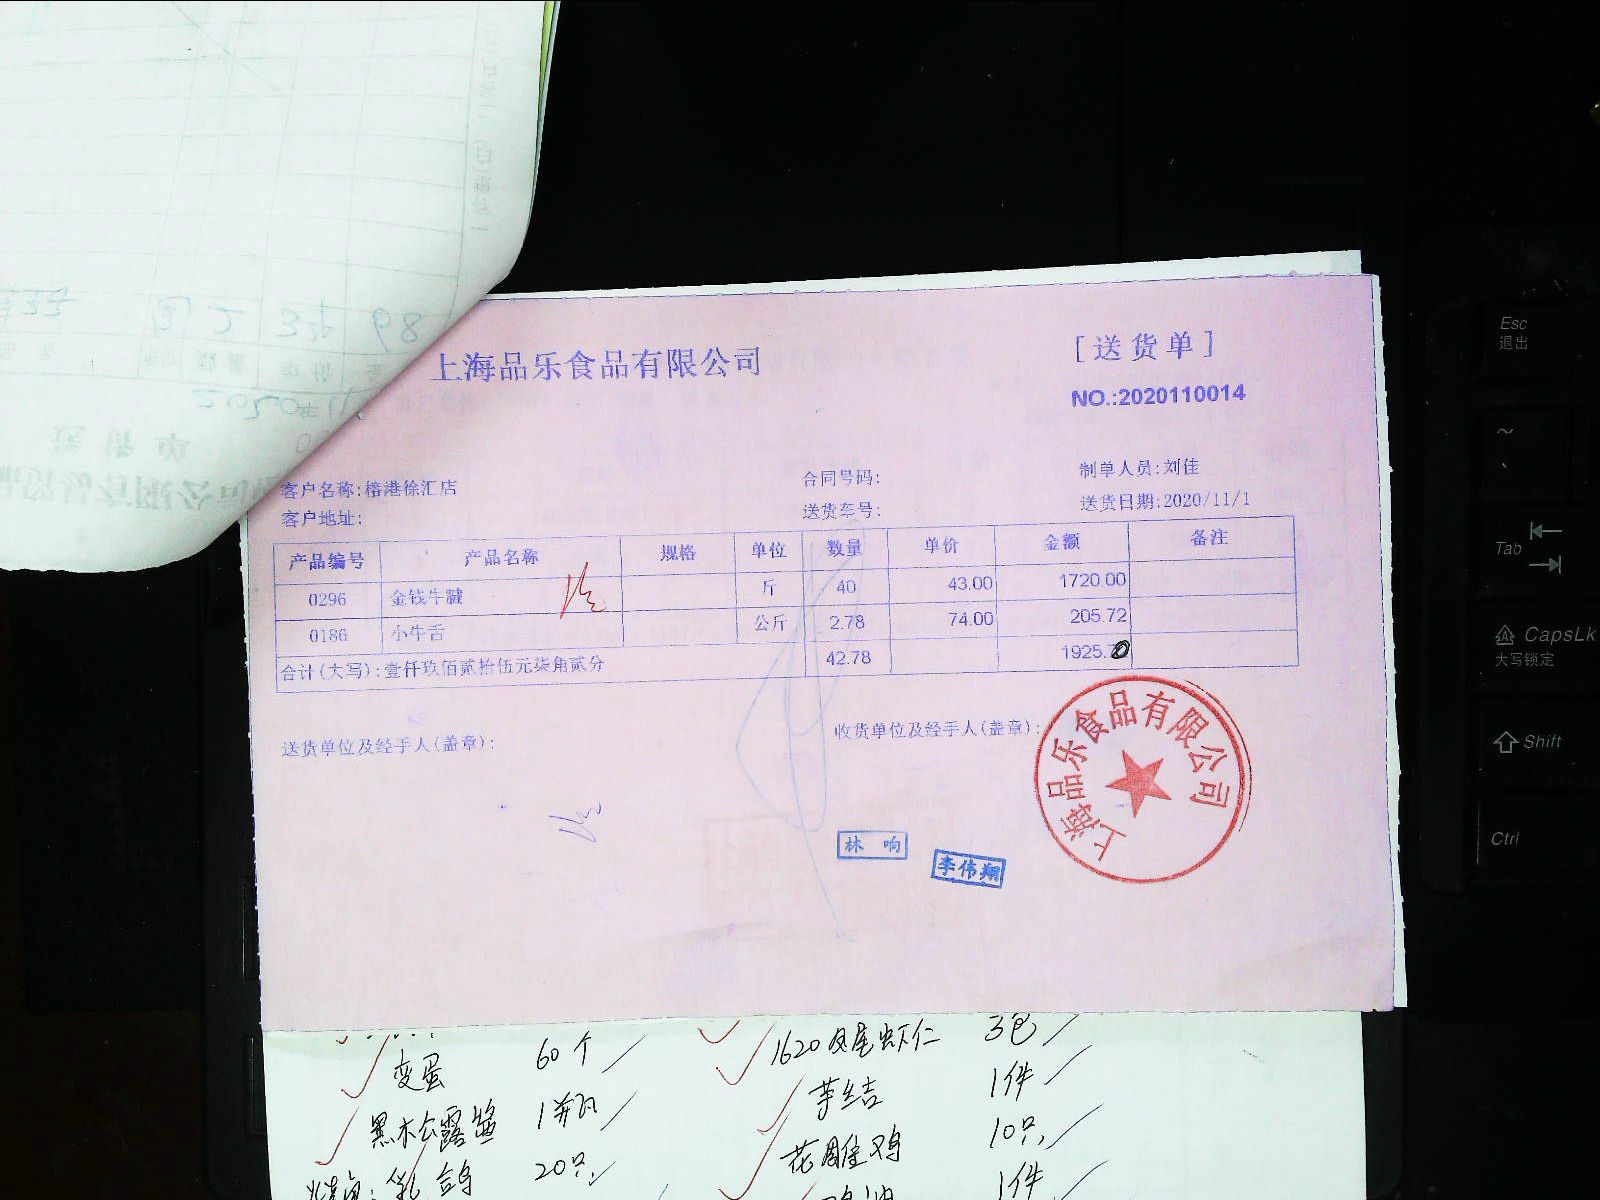 上海品乐食品有限公司
[送货单]
NO.:2020110014
客户名称:椿港徐汇店
合同号码:
制单人员:刘佳
客户地址:
送货车号:
送货日期:2020/11/1
产品编号 产品名称 规格 单位 数量 单价 金额 备注
0296 金钱牛腱 斤 40 43.00 1720.00
0186 小牛舌 公斤 2.78 74.00 205.72
合计(大写):壹仟玖佰贰拾伍元柒角贰分 42.78 1925.70
送货单位及经手人(盖章):
收货单位及经手人(盖章):
上海品乐食品有限公司
林响
李伟翔
变蛋 60个
1620凤尾虾仁 3包
黑木松露酱 1瓶
芋结 1件
乳鸽 20只
花雕鸡 10只
1件
Esc
退出
Tab
CapsLk
大写锁定
Shift
Ctrl